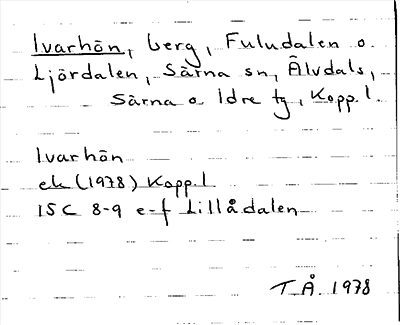 Ivarhön, berg, Fuludalen o.
Ljördalen, Särna sn, Älvdals,
Särna o. Idre tg, Kopp. l.
Ivarhön
ek (1978) Kopp. l
15C 8-9 e-f Lillådalen
T.Å. 1978